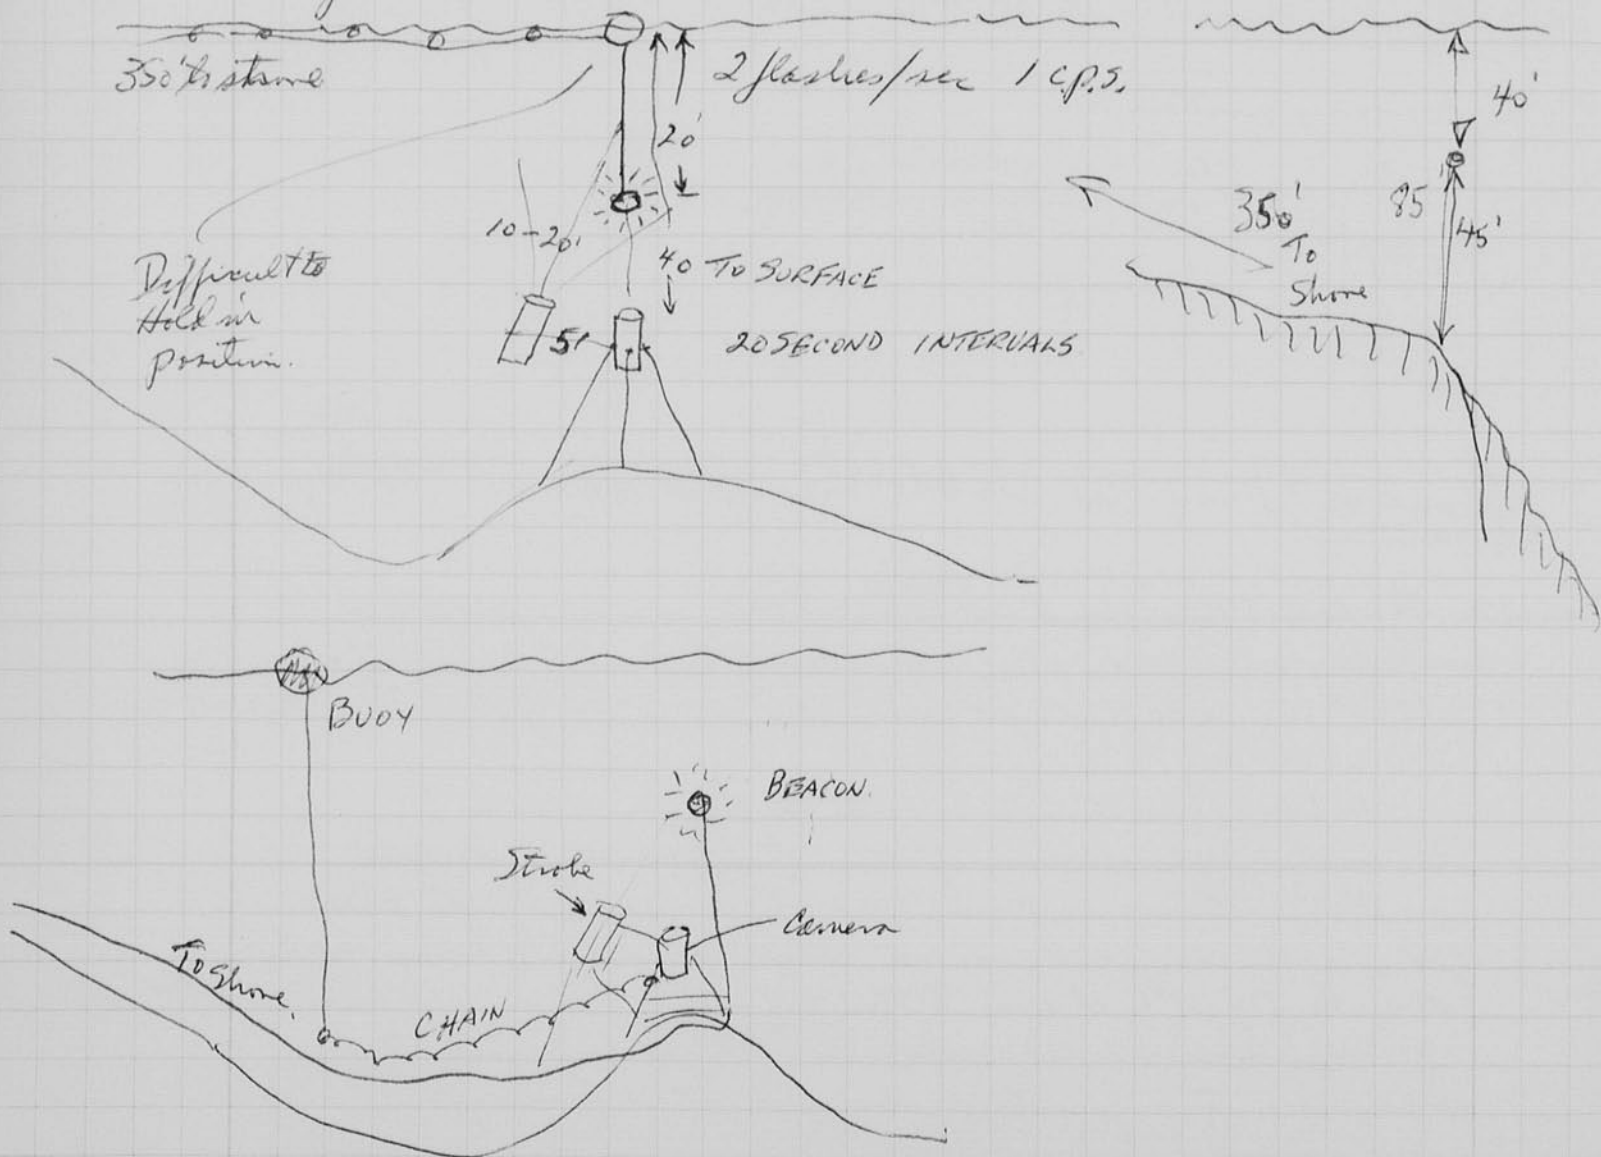 350' to shore
2 flashes/sec 1 c.p.s.
40'
20'
10-20'
Difficult to
Hold in
position.
40 TO SURFACE
5'
20 SECOND INTERVALS
350'
To
Shore
85'
45'
BUOY
BEACON.
Strobe
Camera
To Shore.
CHAIN